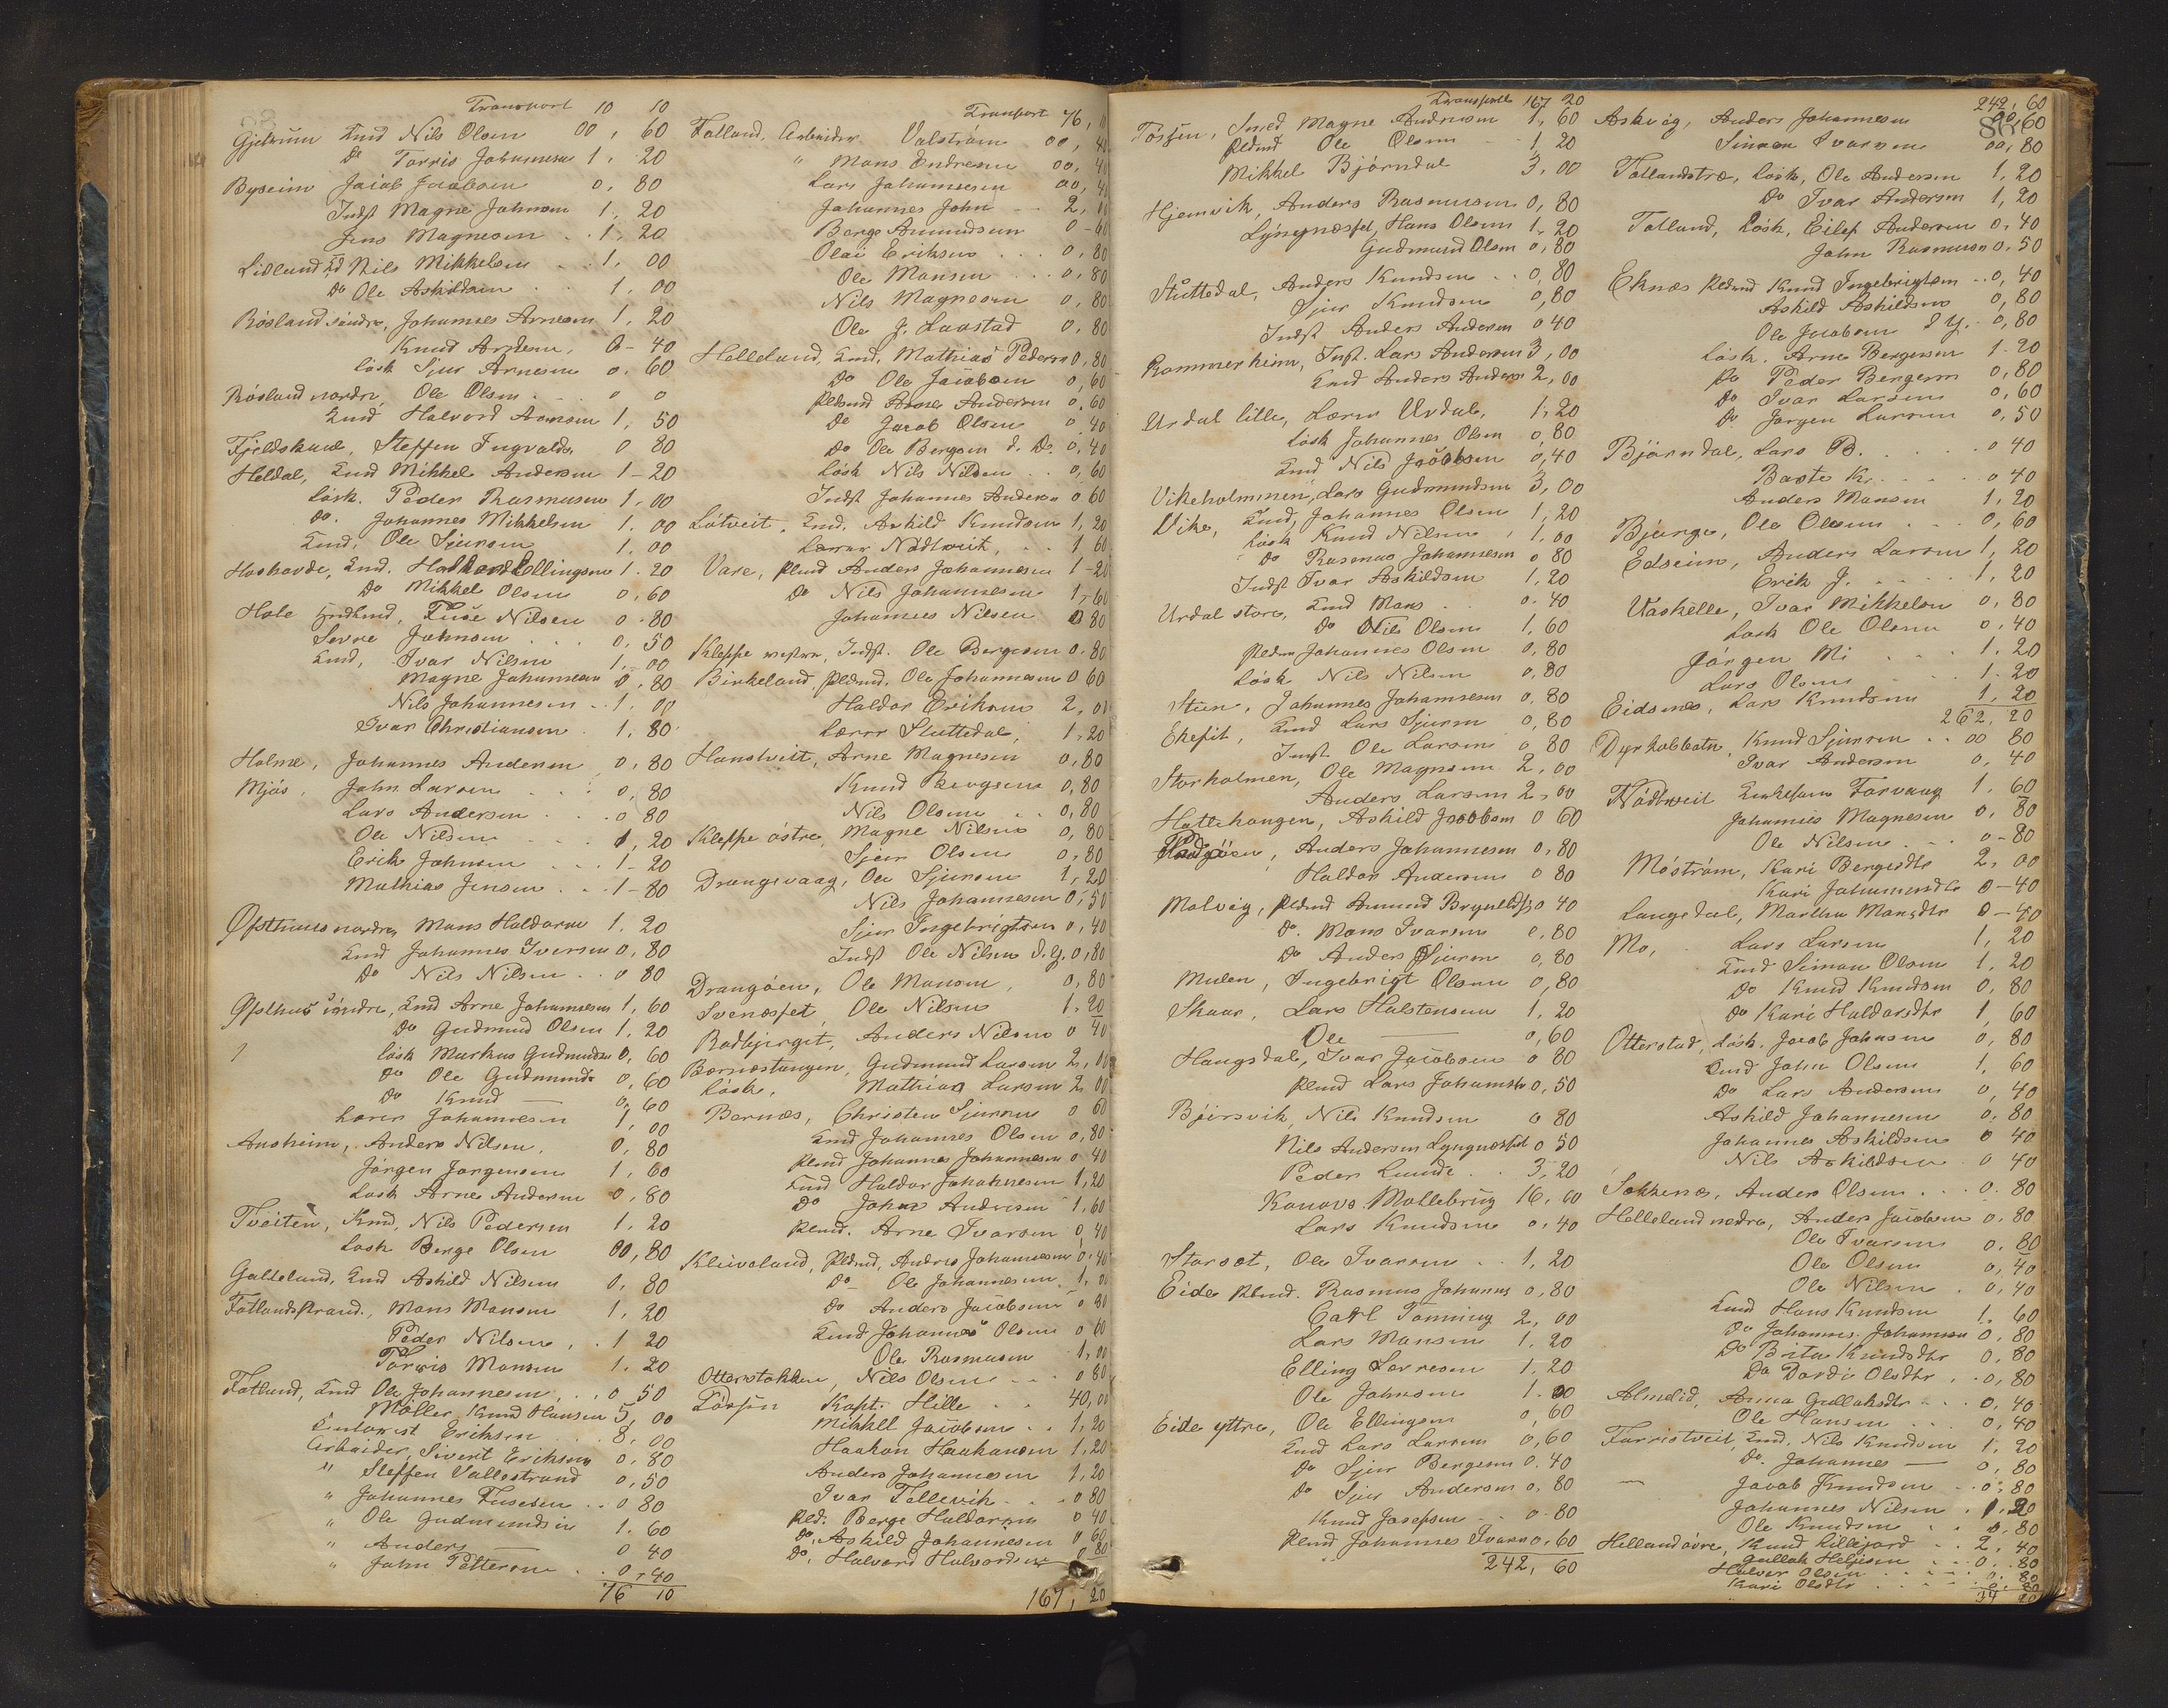 Transport 10 10
Gjeltrum Enid Nils Olsen 00, 60
Do Torris Johannesen 1, 20
Byseim Jacob Jacobsen 0, 80
Indst Magne Johnsen 1, 20
Jens Magnesen .. 1, 20
Lidland Nils Mikkelsen .. 1, 00
Do Ole Askildsen 1, 00
Rösland söndre, Johannes Arnesen 1, 20
Knud Arnesen, 0 - 40
Lösk Sjur Arnesen 0, 60
Rösland nordre, Ole Olsen . 0 0
Enid Halvord Arnesen 1, 50
Fjeldskaal, Steffen Ingvalds. 0 80
Heldal, Enid Mikkel Andersen 1 - 20
Lösk. Peder Rasmusen 1, 00
Do. Johannes Mikkelsen 1, 00
Enid, Ole Sjursen 1, 00
Haskavde, Enid. Ellingsen 1. 20
Do Mikkel Olsen 0, 60
Hole Nilsen 0 - 80
Sevre Johnsen 0, 50
Enid, Ivar Nilsen 1, 00
Magne Johannesen 0, 80
Nils Johannesen .. 1, 00
Ivar Christiansen . 1, 80
Holme, Johannes Andersen 0, 80
Mjös, John Larsen 0, 80
Lars Andersen . . 0 80
Ole Nilsen 1, 20
Erik Johnsen 1 - 20
Mathias Jensen . . 1 - 80
Øfsthuus nordre, Mons Haldorsen 1. 20
Enid Johannes Iversen 0, 80
Do Nils Nilsen .. 0 80
Øfsthus söndre, Enid Arne Johannesen 1, 60
Do Gudmund Olsen 1, 20
Lösk Markus Gudmunds 0, 60
Do Ole Gudmunds 0, 60
Do Knud — 0, 60
Lærer Johannesen 1, 00
Ausheim, Anders Nilsen, 0, 80
Jörgen Jörgensen 1, 60
Lösk Arne Andersen 0, 80
Tveiten, Enid, Nils Pedersen 1. 20
Lösk Berge Olsen 00, 80
Galteland, Enid Askild Nilsen 0, 80
Fatlandsstrand., Mons Monsen 1, 20
Peder Nilsen, . 1 20
Torris Monsen 1. 20
Fatland, Enid Ole Johannesen, . . 0, 50
Möller Knud Hansen 5, 00
Eriksen . . 8, 00
Arbeider, Sivert Eriksen 0, 80
" Steffen Vallestrand 0, 50
" Johannes Fusesen . . 0 80
" Ole Gudmundsen 1. 60
" Anders — 0 40
" John Pettersen . . 0, 40
76 10
Transport 76, 10
Fatland, Arbeider Valström 00, 40
" Mons Endresen 00, 40
Lars Johannesen 00, 40
Johannes John — 2, 00
Berge Amundsen 0 - 60
Olai Eriksen . . . 0, 80
Ole Monsen . . . 0, 80
Nils Magnesen 0, 80
Ole J. Laastad 0, 80
Helleland, Enid, Mathias Pedersen 0, 80
Do Ole Jacobsen 0, 60
Pldmd Arne Andersen 0, 60
Do Jacob Olsen 0, 40
Do Ole Bergesen d. D. 0, 40
Lösk Nils Nilsen . . 0, 60
Indst Johannes Andersen 0 60
Lötveit, Enid, Askild Knudsen 1, 20
Lærer Nödtveit, . . 1 60
Vare, Pldmd Anders Johannesen 1 - 20
Do Nils Johannesen 1, 60
Johannes Nilsen 0 80
Kleppe vestre, Indst. Ole Bergesen 0. 80
Birkeland Pldmd, Ole Johannesen 0 60
Haldor Eriksen 2, 00
Lærer Sluttedal, 1, 20
Hanstveit, Arne Magnesen 0, 80
Knud Bergsen 0, 80
Nils Olsen . . 0, 80
Kleppe östre, Magne Nilsen 0, 80
Sjur Olsen 0, 80
Drangevaag, Ole Sjursen 1, 20
Nils Johannesen 0, 50
Sjur Ingebrigtsen 0, 40
Indst Ole Nilsen d. y. 0, 80
Drangöen, Ole Monsen, 0, 80
Svenæsset, Ole Nilsen 1. 20
Rødbjerget, Anders Nilsen 0 40
Bernæstangen, Gudmund Larsen 2, 00
Lösk, Mathias Larsen 2, 00
Bernæs, Christen Sjursen 0 60
Enid Johannes Olsen 0, 80
Plmd Johannes Johannesen 0. 40
Enid Haldor Johannesen 1, 20
Do John Andersen 1, 60
Plmd. Arne Ivarsen 0, 40
Kleiveland, Pldmd, Anders Johannesen 0. 40
Do Ole Johannesen 1, 00
Do Anders Jacobsen 0 80
Enid Johannes Olsen 0 60
Ole Rasmusen 1, 00
Otterstokken, Nils Olsen . . . 0 80
Tössen Kapt. Hille . . 40, 00
Mikkel Jacobsen . . 1, 20
Haakon Haakonsen 1, 20
Anders Johannesen 1, 20
Ivar Tellevik . . . 0 80
Pld. Berge Haldorsen 0 40
Do, Askild Johannesen 0 60
Do, Halvord Halvordsen 0 80
167, 20
Transport 167 20
Tössen, Smed Magne Andersen 1, 60
Pldmd Ole Olsen 1, 20
Mikkel Björndal 3, 00
Hjemvik, Anders Rasmusen 0, 80
Lyngnæsset, Hans Olsen 1, 20
Gudmund Olsen 0, 80
Sluttedal, Anders Knudsen . . 0, 80
Sjur Knudsen 0, 80
Indst Anders Andersen 0 40
Rammerheim, Inst. Lars Andersen 3, 00
Enid Anders Anders 2, 00
Urdal lille, Lærer Urdal, 1, 20
Lösk Johannes Olsen 0, 80
Enid Nils Jacobsen 0, 40
Vikeholmmen, Lars Gudmundsen 3, 00
Vike, Enid, Johannes Olsen 1, 20
Lösk Knud Nilsen, 1, 00
Do Rasmus Johannesen 0 80
Indst Ivar Askildsen 1, 20
Urdal store, Enid Mons . . 0. 40
Do Nils Olsen 1, 60
Pldm Johannes Olsen 0, 80
Lösk Nils Nilsen 0, 80
Stuen, Johannes Johannesen 0, 80
Ekefit, Enid Lars Sjursen 0, 80
Inst Ole Larsen 0, 80
Storholmen, Ole Magnesen 2, 00
Anders Larsen 2, 00
Hattehaugen, Askild Jacobsen 0 60
Anders Johannesen 0, 80
Haldor Andersen 0 80
Malvig, Pldmd Amund Bryneldss 0 40
Do. Mons Ivarsen 0, 80
Do Anders Sjursen 0, 80
Mulen, Ingebrigt Olsen 0, 80
Skaar, Lars Halstensen 1, 20
Ole — 0, 60
Haugsdal, Ivar Jacobsen 0 80
Plmd Lars Johannes 0, 50
Björsvik, Nils Knudsen 0 80
Nils Andersen Lyngnæsset 0 50
Peder Lunde . . 3, 20
Konows Möllebrug 16, 60
Lars Knudsen 0, 40
Storset, Ole Ivarsen . . 1, 20
Eide Plmd. Rasmus Johannes 0, 80
Carl Tonning 2, 00
Lars Monsen 1, 20
Elling Larsen 1, 20
Ole Johnsen 1. 00
Eide yttre, Ole Ellingsen 0, 60
Enid Lars Larsen 0, 60
Do Sjur Bergesen 0. 40
Do Sjur Andersen 0, 80
Knud Josefsen . . 0. 80
Plmd Johannes Ivars 0, 60
242, 60
242, 60
Askvig, Anders Johannesen 00, 60
Simon Ivarsen 00, 80
Fatlandstræ, Lösk, Ole Andersen 1, 20
Do Ivar Andersen 1, 20
Fatland, Lösk, Eilef Andersen 0, 40
John Rasmusen 0. 50
Eknæs Pldmd Knud Ingebrigtsen . . 0, 40
Askild Askildsen 0, 80
Ole Jacobsen d y. - 0, 80
Lösk. Arne Bergersen 1. 20
Do Peder Bergesen 0, 80
Do Ivar Larsen 0, 60
Do Jørgen Larsen 0, 50
Björndal, Lars B. . . . . . 0 40
Baste Kr. . . . . 0 40
Anders Monsen 1, 20
Bjørge, Ole Olsen . . . 0, 60
Edseim, Anders Larsen 1, 20
Erik J. . . . . 1, 20
Vaskelle, Ivar Mikkelsen 0, 80
Lösk Ole Olsen 0, 40
Jörgen Mi . . . . 1. 20
Lars Olsen . . . 1. 20
Eidsnes, Lars Knudsen 1, 20
262, 20
Dyrkolbotn, Knud Sjursen . . 00 80
Ivar Andersen 0, 40
Nödtveit Enkefru Farvaag 1. 60
Johannes Magnesen 0, 80
Ole Nilsen . . . 0 - 80
Möström, Kari Bergesdtr 2, 00
Kari Johannesdtr 0 - 40
Langedal, Martha Monsdtr 0 - 40
Mo, Lars Larsen 1, 20
Enid Simon Olsen 1. 20
Do Knud Knudsen 0, 80
Do Kari Haldorsdtr 1, 60
Otterstad, Lösk. Jacob Johnsen 0, 80
Enid John Olsen 1, 60
Do Lars Andersen 0, 40
Askild Johannesen 0, 80
Johannes Askildsen 0 40
Nils Askildsen . 0 40
Søkkenæs, Anders Olsen . . . 0. 80
Helleland nedre, Anders Jacobsen 0. 80
Ole Ivarsen 0. 80
Ole Olsen 0, 40
Ole Nilsen . 0, 40
Enid Hans Knudsen 1. 60
Do Johannes. Johannesen 0. 80
Do Brita Knudsdtr 0, 80
Do Dordi Olsdtr . . 0, 80
Almelid, Anna Gullaksdtr . . . 0, 40
Ole Hansen . . . 0, 40
Farristveit, Enid, Nils Knudsen 1. 20
Do. Johannes — 0, 80
Jacob Knudsen . . 0, 80
Johannes Nilsen . 1. 20
Ole Knudsen . . 0, 80
Hellandøvre, Knud Lillejord . . 2, 40
Gullak Helgesen . . 0. 80
Halvor Olsen . . . . 0. 80
Kari Olsdtr . . . . 0. 80
34 20